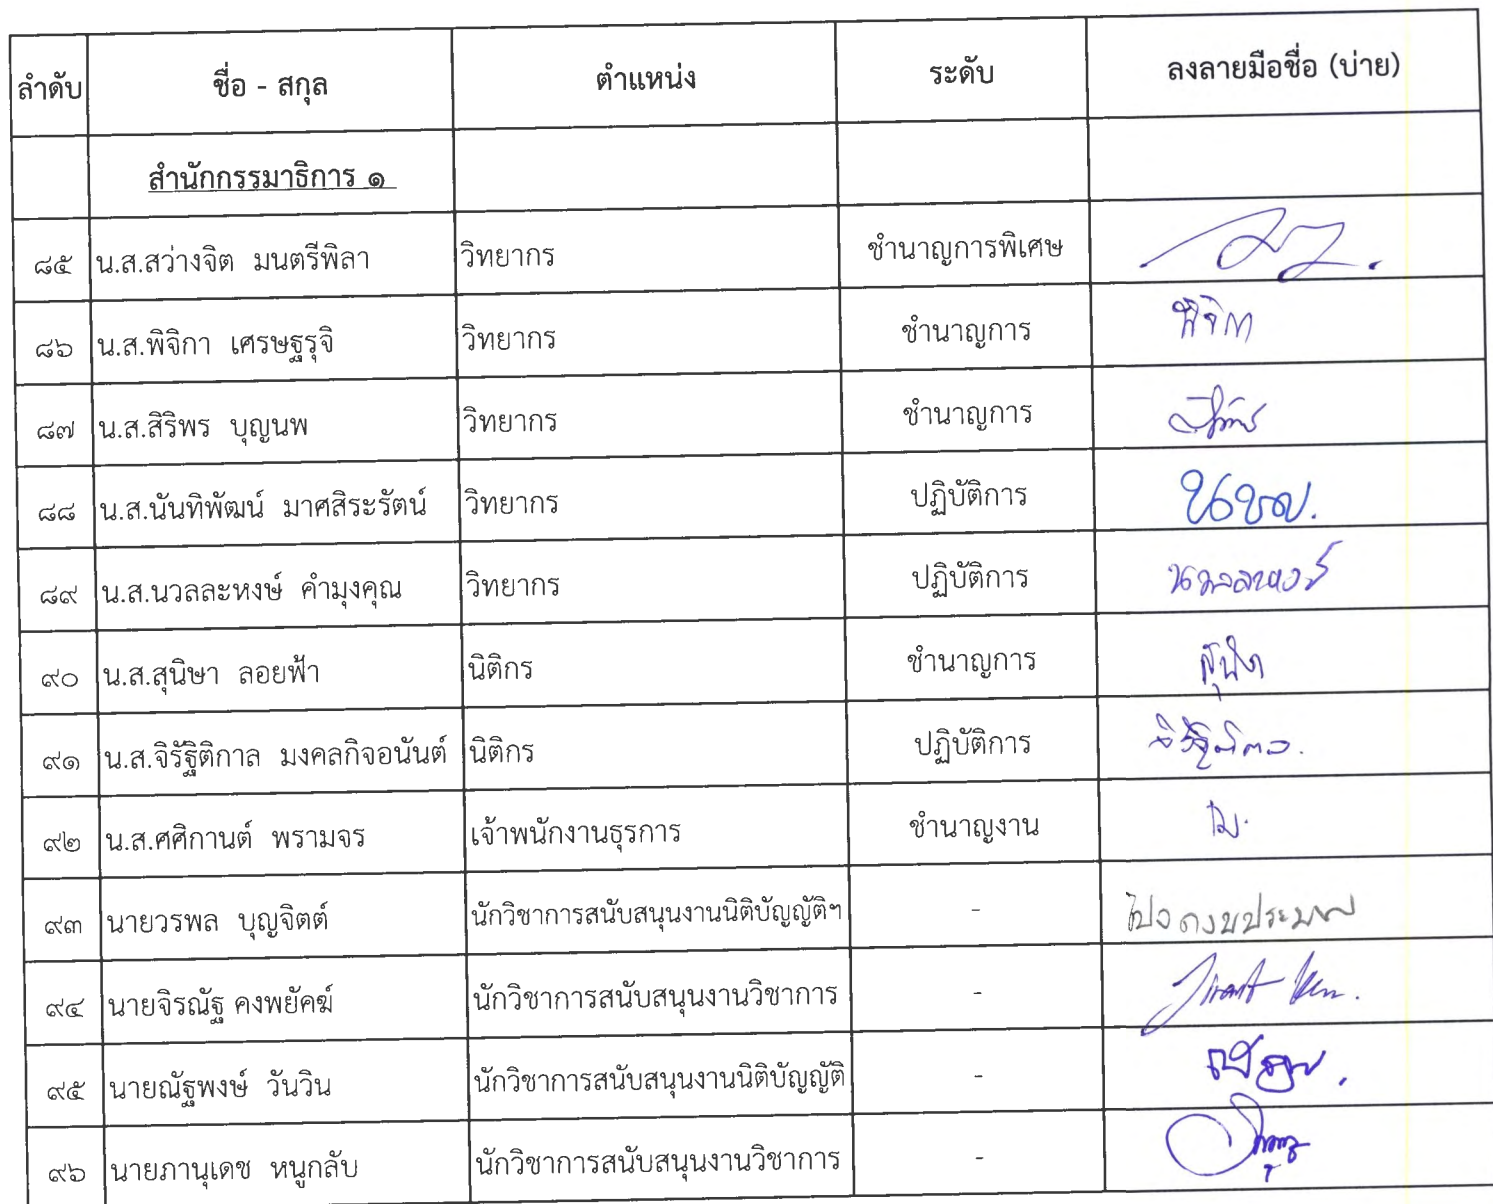 ลำดับ ชื่อ - สกุล ตำแหน่ง ระดับ ลงลายมือชื่อ (บ่าย)
สำนักกรรมาธิการ ๑
๘๕ น.ส.สว่างจิต มนตรีพิลา วิทยากร ชำนาญการพิเศษ
๘๖ น.ส.พิจิกา เศรษฐรุจิ วิทยากร ชำนาญการ พิจิกา
๘๗ น.ส.สิริพร บุญนพ วิทยากร ชำนาญการ
๘๘ น.ส.นันทิพัฒน์ มาศสิระรัตน์ วิทยากร ปฏิบัติการ
๘๙ น.ส.นวลละหงษ์ คำมุงคุณ วิทยากร ปฏิบัติการ นวลละหงษ์
๙๐ น.ส.สุนิษา ลอยฟ้า นิติกร ชำนาญการ
๙๑ น.ส.จิรัฐิติกาล มงคลกิจอนันต์ นิติกร ปฏิบัติการ
๙๒ น.ส.ศศิกานต์ พรามจร เจ้าพนักงานธุรการ ชำนาญงาน
๙๓ นายวรพล บุญจิตต์ นักวิชาการสนับสนุนงานนิติบัญญัติฯ -
๙๔ นายจิรณัฐ คงพยัคฆ์ นักวิชาการสนับสนุนงานวิชาการ -
๙๕ นายณัฐพงษ์ วันวิน นักวิชาการสนับสนุนงานนิติบัญญัติ -
๙๖ นายภานุเดช หนูกลับ นักวิชาการสนับสนุนงานวิชาการ -